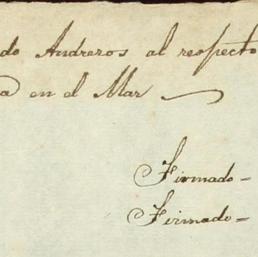 do Andreros al respecto
a en el Mar
Firmado-
Firmado-